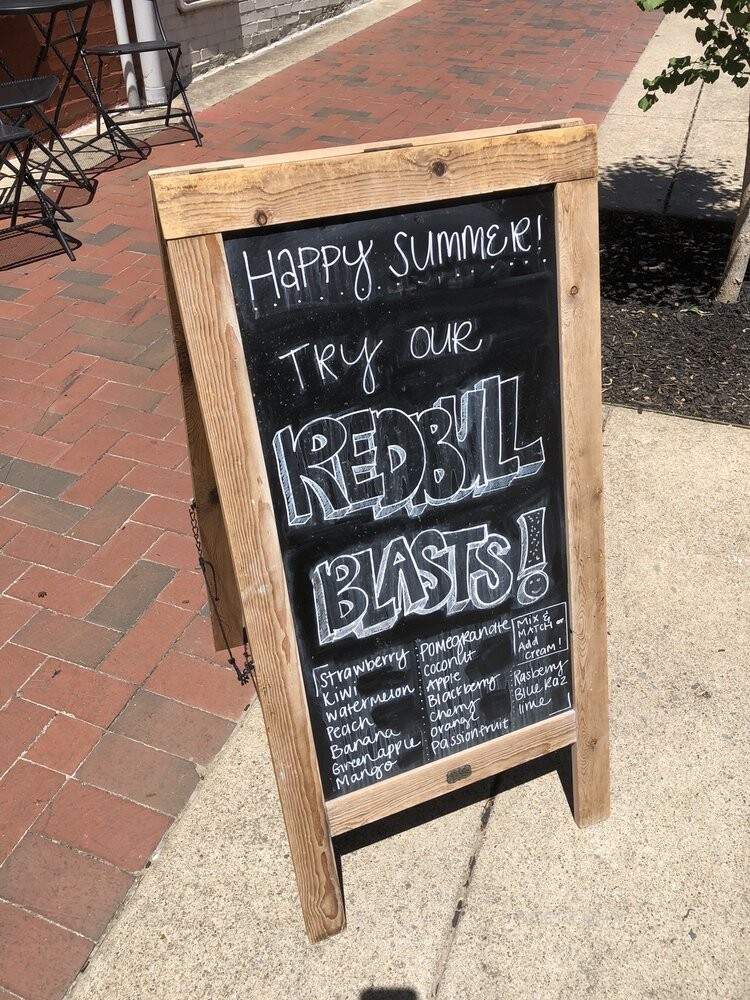 HAPPY SUMMER!
TRY OUR
REDBULL
BLASTS!
Strawberry
Kiwi
Watermelon
Peach
Banana
Green apple
Mango
Pomegranate
Coconut
Apple
Blackberry
Cherry
Orange
Passionfruit
MIX &
MATCH or
Add
Cream!
Rasberry
Blue Raz
lime